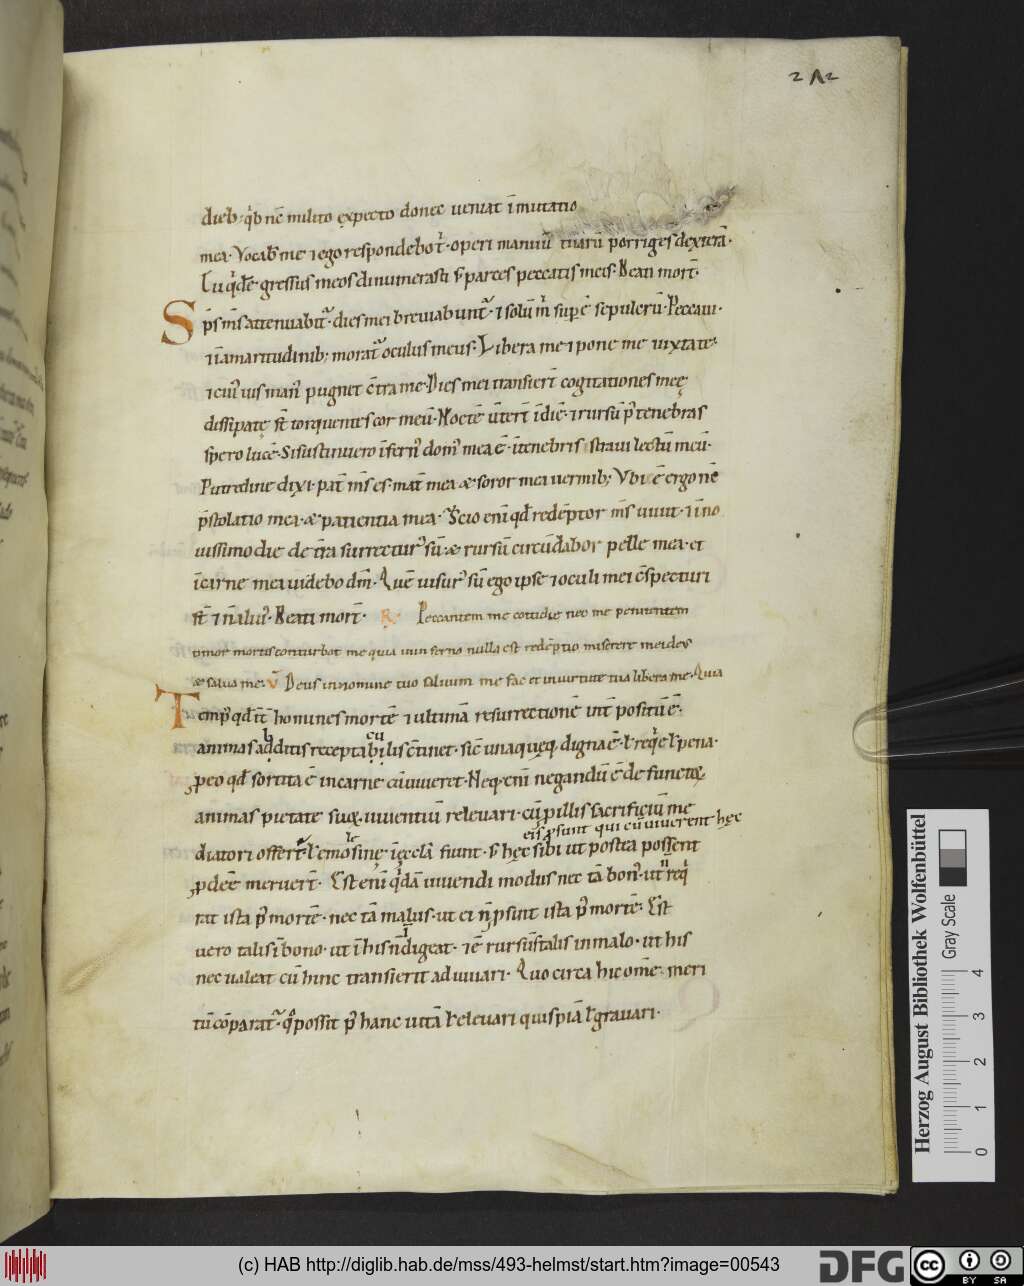 2 Λ 2
dieb; qͥb nc̄ milito ęxpecto donec ueniat īmutatio
mea. Vocab᷒ me ⁊ ego respondebo tͥ. operi manuū tuarū porriges dexterā.
Tu qͥdē gressus meos dinumerasti s; parces peccatis meis. Beati mort̄.
Sp̄s m̄s attenuabit᷑. dies mei breuiabunt᷑. ⁊ solū mͥ sup̄ē sepulcrū. Peccaui.
⁊ ī amaritudinib; morat᷑ oculus meus. Libera me ⁊ pone me iuxta te.
⁊ cui᷒ uis man᷒ pugnet c̄tra me. Dies mei transier̄t cogitationes meę
dissipatę st̄ torquentes cor meū. Noctē ūter̄t ī diē. ⁊ rursū p᷒ tenebras
spero lucē. Si sustinuero īfern᷒ dom᷒ mea ē. ī tenebris straui lectū meū.
Putredine dixi. pat̄ m̄s es. mat̄ mea æ soror mea uermib; Vbi ē ergo nc̄
p̄stolatio mea. æ patientia mea. Scio eni qd̄ redēptor m̄s uiuit. ⁊ ī no
uissimo die de t̄ra surrectur᷒ sū. æ rursū circūdabor pelle mea. et
ī carne mea uidebo dm̄. Quē uisur᷒ sū ego ipse ⁊ oculi mei c̄specturi
st̄ ⁊ n̄ alius. Beati mort̄. R. Peccantem me cottidie nec me penitentem
timor mortis conturbat me quia in inferno nulla est redēptio miserere mei deus
æ salua me. V Deus in nomine tuo saluum me fac et in uirtute tua libera me. Quia
Temp᷒ qd̄ īt̄ hominis mortē ⁊ ultimā resurrectionē int̄ positū ē.
animas abditis receptaculis c̄tinet. sic̄ unaquęq; digna ē. ł reqͥē ł pena.
p eo qd̄ sortita ē in carne cū uiueret. Neq; eni negandū ē defunctor̄
animas pietate suor̄ uiuentiū releuari. cū p illis sacrificiū me
eis p̄sunt qui cū uiuerent hęc
diatori offert᷑ ł elemosinę ī ęcclā fiunt. s; hęc sibi ut postea possent
pdeē meruer̄t. Est eni qͥdā uiuendi modus nec tā bon᷒. ut n̄ reqͥ
rat ista p᷒ mortē. nec tā malus. ut ei n̄ p̄sint ista p᷒ mortē. Est
uero talis ī bono. ut ī his n̄ idigeat. ⁊ ē rursū talis in malo. ut his
nec ualeat cū hinc transierit adiuuari. Quo circa hic om̄e meri
tū cōparat᷑. qͦ possit p᷒ hanc uitā ł releuari quispiā ł grauari.
Herzog August Bibliothek Wolfenbüttel
Gray Scale
0 1 2 3 4
(c) HAB http://diglib.hab.de/mss/493-helmst/start.htm?image=00543
DFG
cc BY SA